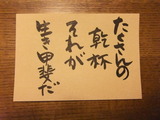 たくさんの
乾杯
それが
生き甲斐だ